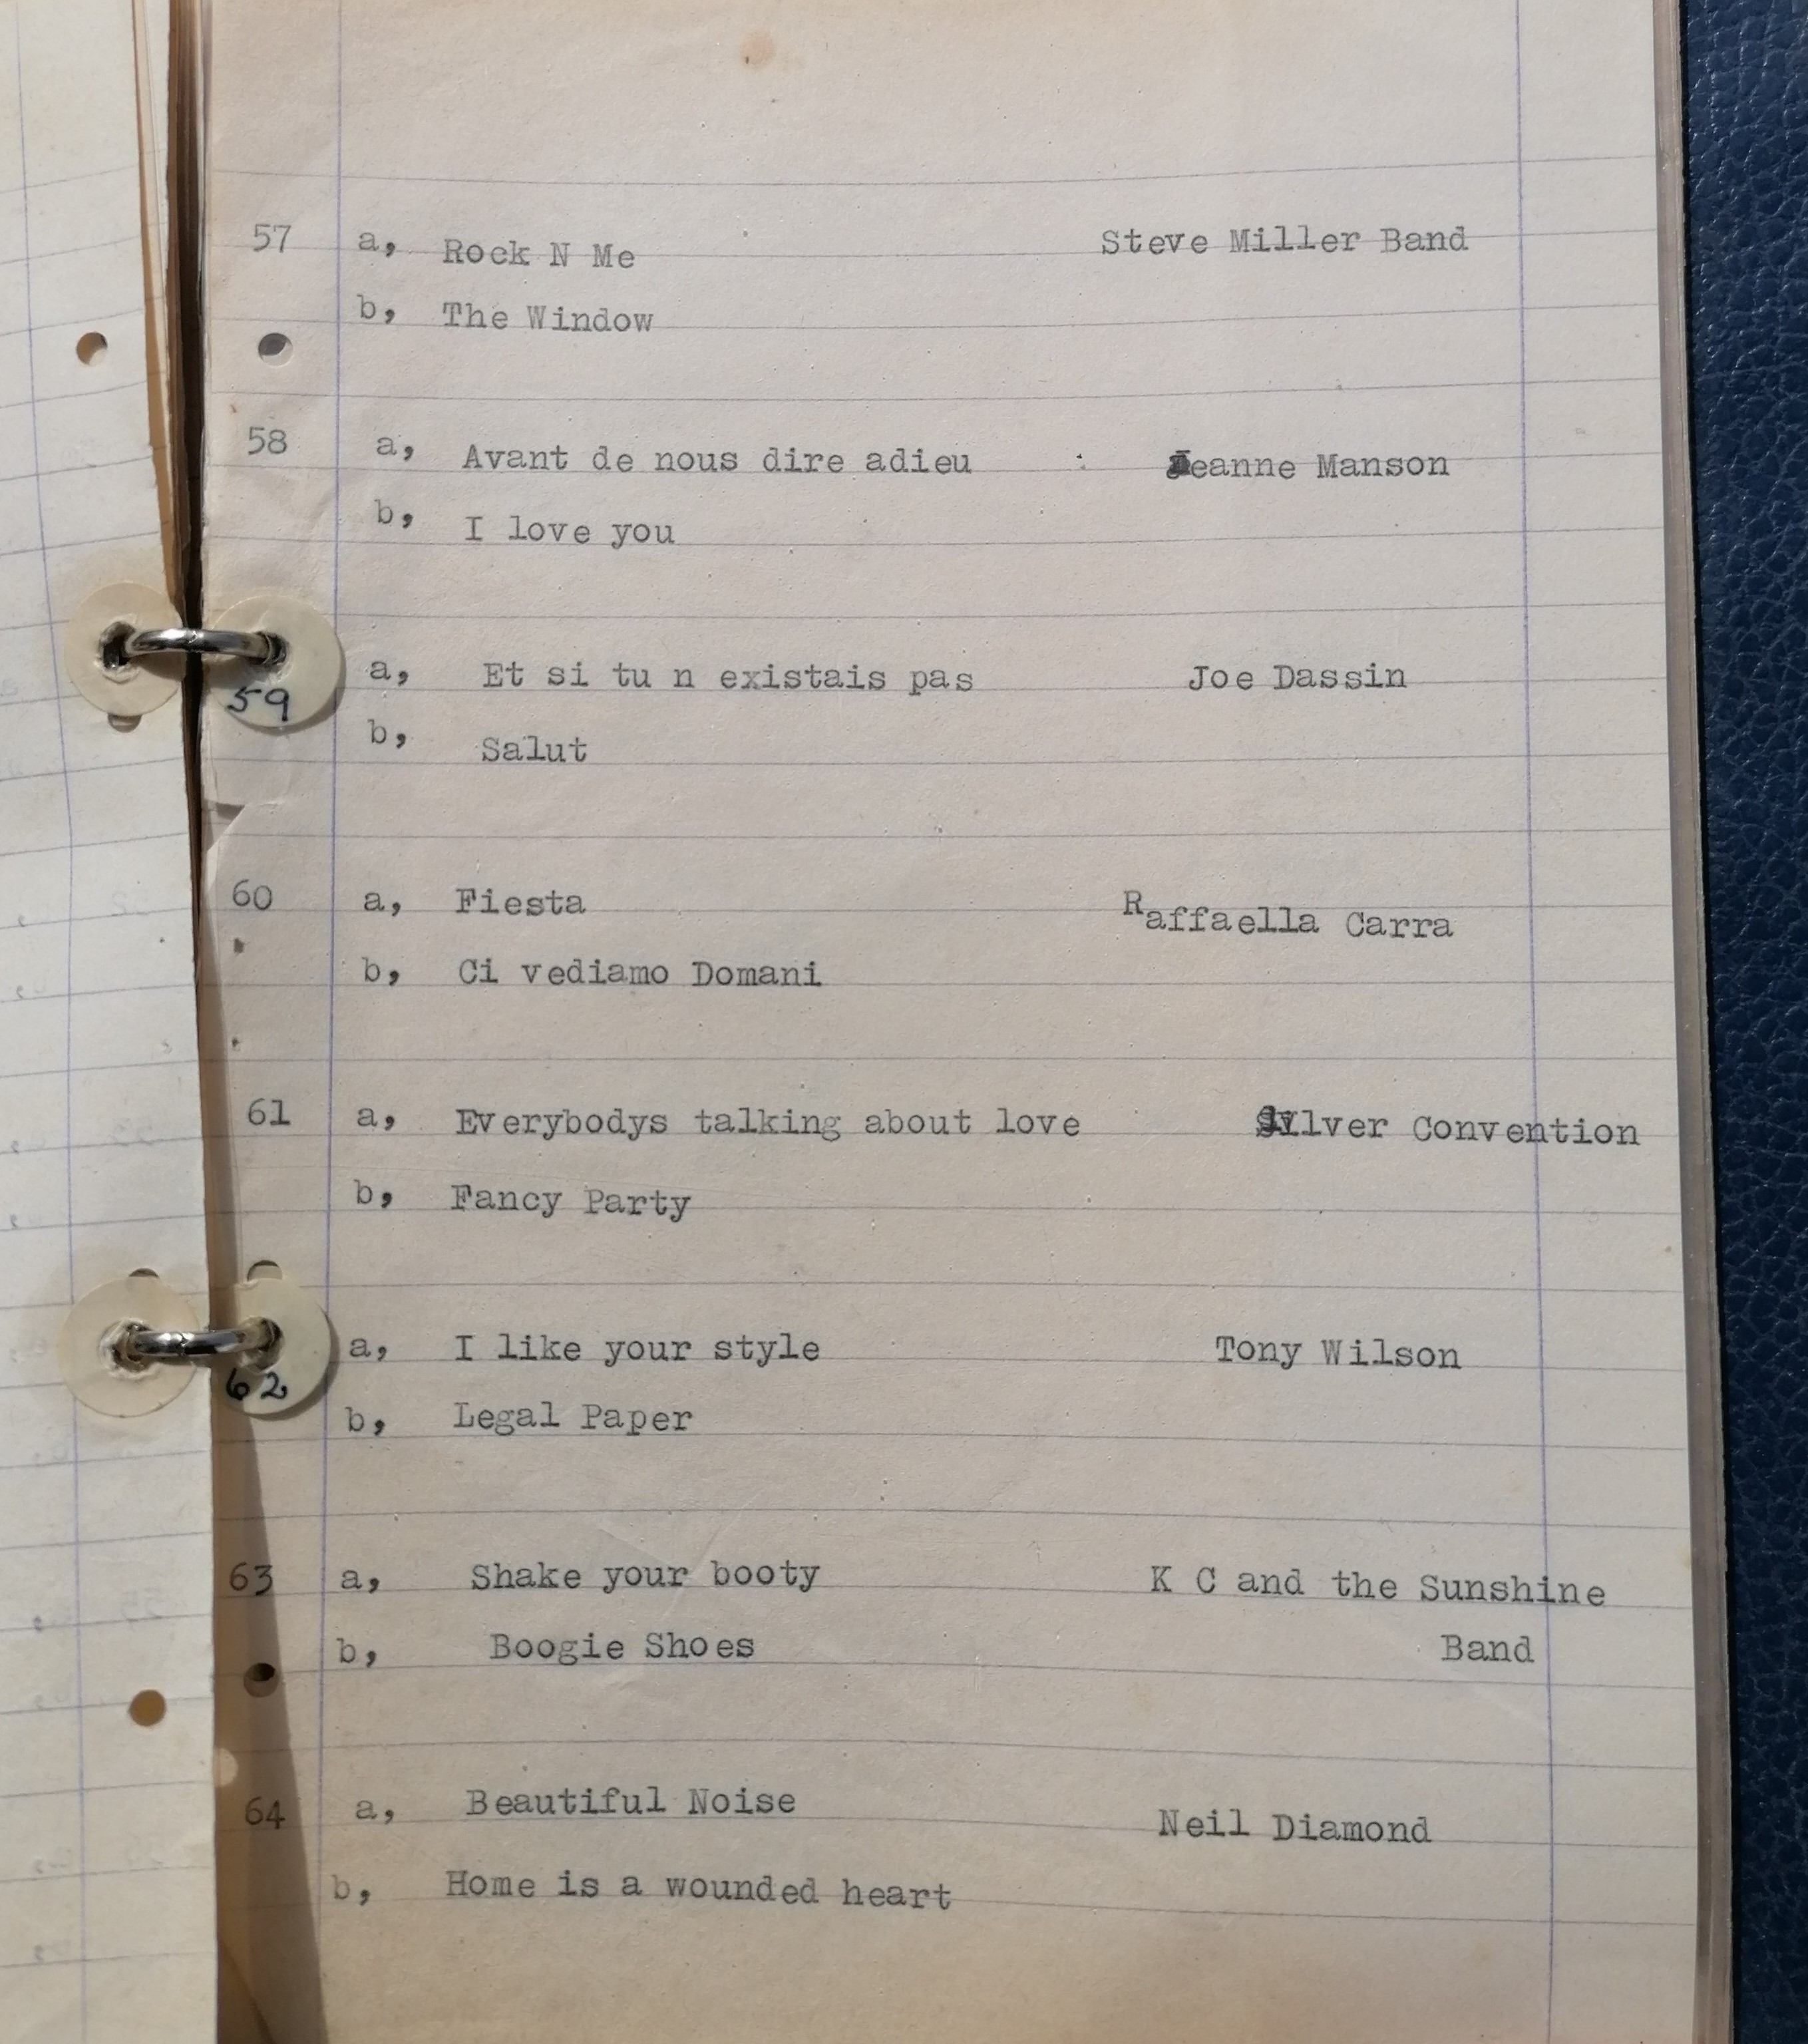 57 a, Rock N Me Steve Miller Band
b, The Window
58 a, Avant de nous dire adieu Jeanne Manson
b, I love you
59 a, Et si tu n existais pas Joe Dassin
b, Salut
60 a, Fiesta Raffaella Carra
b, Ci vediamo Domani
61 a, Everybodys talking about love Silver Convention
b, Fancy Party
62 a, I like your style Tony Wilson
b, Legal Paper
63 a, Shake your booty K C and the Sunshine
b, Boogie Shoes Band
64 a, Beautiful Noise Neil Diamond
b, Home is a wounded heart